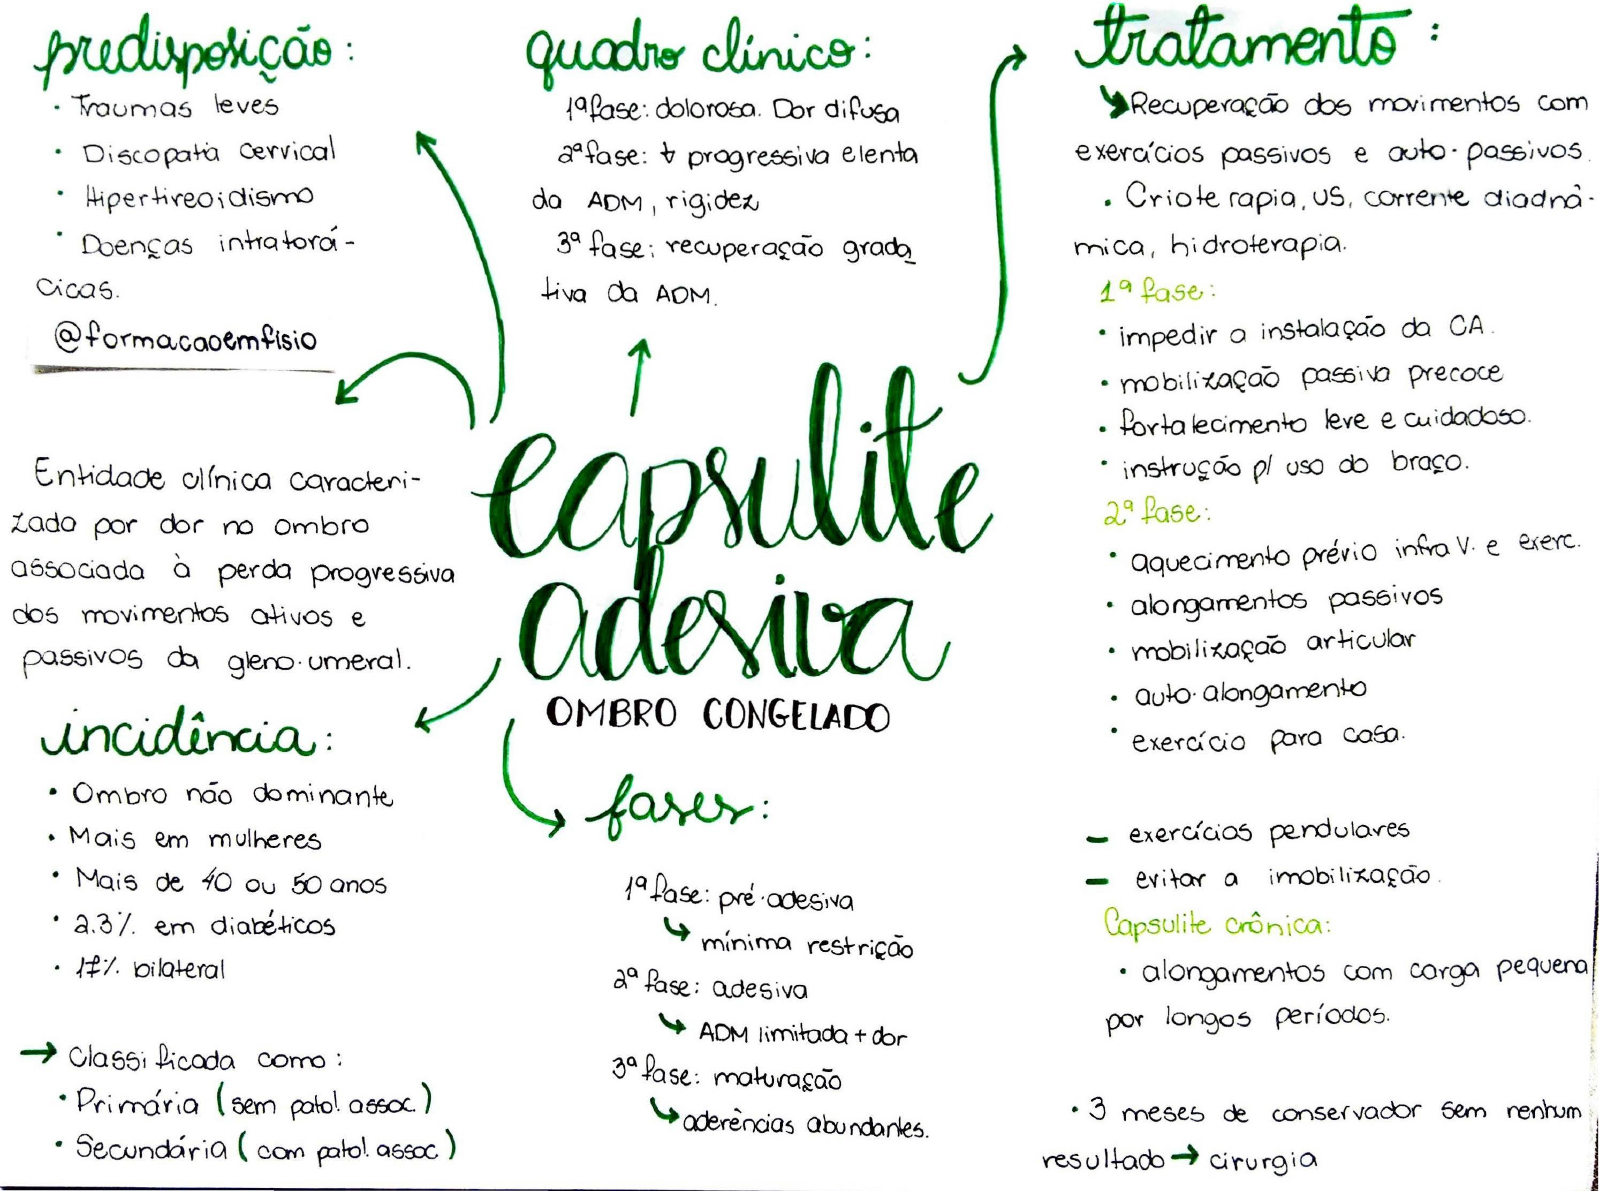 predisposição:
· Traumas leves
· Discopatia cervical
· Hipertireoidismo
· Doenças intratorá-
cicas.
@formacaoemfisio
Entidade clínica caracteri-
zada por dor no ombro
associada à perda progressiva
dos movimentos ativos e
passivos da gleno·umeral.
incidência:
· Ombro não dominante
· Mais em mulheres
· Mais de 40 ou 50 anos
· 2.3% em diabéticos
· 17% bilateral
→ Classificada como:
· Primária (sem patol. assoc.)
· Secundária (com patol. assoc)
quadro clínico:
1ª fase: dolorosa. Dor difusa
2ª fase: ↓ progressiva e lenta
da ADM, rigidez
3ª fase: recuperação grada
tiva da ADM.
capsulite
adesiva
OMBRO CONGELADO
fases:
1ª fase: pré·adesiva
↳ mínima restrição
2ª fase: adesiva
↳ ADM limitada + dor
3ª fase: maturação
↳ aderências abundantes.
tratamento:
↳ Recuperação dos movimentos com
exercícios passivos e auto·passivos.
· Crioterapia, US, corrente diadnâ-
mica, hidroterapia.
1ª fase:
· impedir a instalação da CA.
· mobilização passiva precoce
· fortalecimento leve e cuidadoso.
· instrução p/ uso do braço.
2ª fase:
· aquecimento prévio infra V. e exerc.
· alongamentos passivos
· mobilização articular
· auto·alongamento
· exercício para casa.
– exercícios pendulares
– evitar a imobilização.
Capsulite crônica:
· alongamentos com carga pequena
por longos períodos.
· 3 meses de conservador sem nenhum
resultado → cirurgia